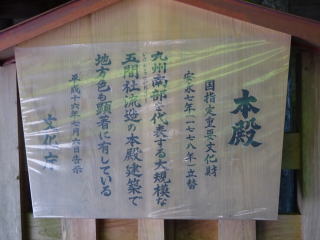 本殿
国指定重要文化財
安永七年(一七七八年)立替
九州南部を代表する大規模な
五間社流造の本殿建築で
地方色も顕著に有している
平成十六年七月六日告示
文化庁